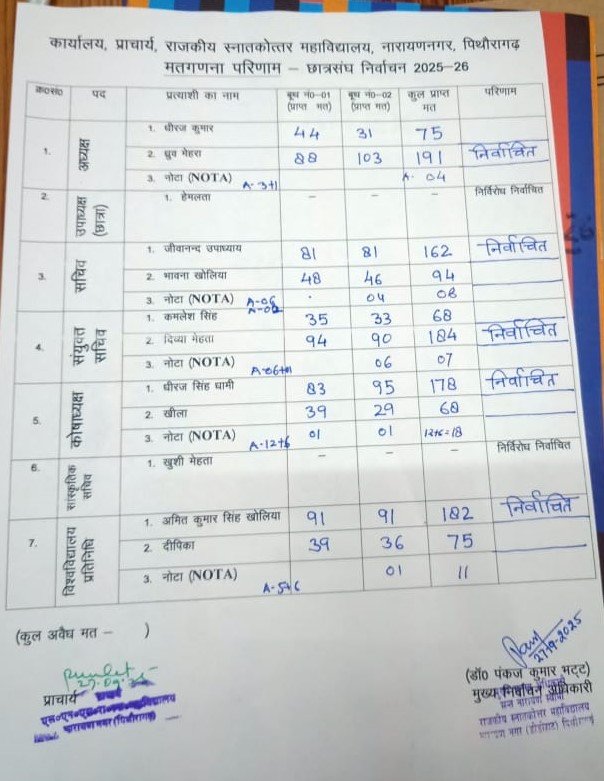 कार्यालय, प्राचार्य, राजकीय स्नातकोत्तर महाविद्यालय, नारायणनगर, पिथौरागढ़
मतगणना परिणाम – छात्रसंघ निर्वाचन 2025-26
क्र०सं० पद प्रत्याशी का नाम बूथ नं०-01 (प्राप्त मत) बूथ नं०-02 (प्राप्त मत) कुल प्राप्त मत परिणाम
1. अध्यक्ष 1. धीरज कुमार 44 31 75
2. ध्रुव मेहरा 88 103 191 निर्वाचित
3. नोटा (NOTA) A-3+1 A- 04
2. उपाध्यक्ष (छात्रा) 1. हेमलता – – – निर्विरोध निर्वाचित
3. सचिव 1. जीवानन्द उपाध्याय 81 81 162 निर्वाचित
2. भावना खोलिया 48 46 94
3. नोटा (NOTA) A-06 A-02 . 04 08
4. संयुक्त सचिव 1. कमलेश सिंह 35 33 68
2. दिव्या मेहता 94 90 184 निर्वाचित
3. नोटा (NOTA) 06 07
5. कोषाध्यक्ष 1. धीरज सिंह धामी 83 95 178 निर्वाचित
2. खीला 39 29 68
3. नोटा (NOTA) A-12+6 01 01 12+6=18
6. सांस्कृतिक सचिव 1. खुशी मेहता – – – निर्विरोध निर्वाचित
7. विश्वविद्यालय प्रतिनिधि 1. अमित कुमार सिंह खोलिया 91 91 182 निर्वाचित
2. दीपिका 39 36 75
3. नोटा (NOTA) A-5+6 01 11
(कुल अवैध मत – )
27/9-2025
प्राचार्य
(डॉ० पंकज कुमार भट्ट)
मुख्य निर्वाचन अधिकारी
राजकीय स्नातकोत्तर महाविद्यालय